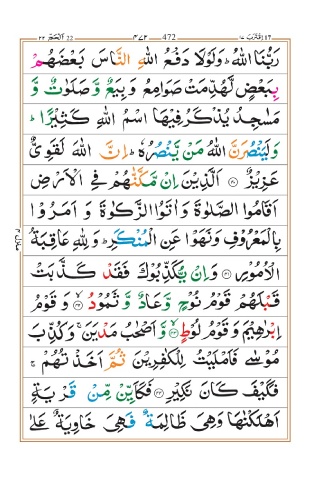 اقترب ١٧ 472 ٤٧٢ الحج 22 ٢٢
رَبُّنَا اللّٰهُ ؕ وَلَوْلَا دَفْعُ اللّٰهِ النَّاسَ بَعْضَهُمْ
بِبَعْضٍ لَّهُدِّمَتْ صَوَامِعُ وَبِيَعٌ وَّصَلَوٰتٌ وَّ
مَسٰجِدُ يُذْكَرُ فِيْهَا اسْمُ اللّٰهِ كَثِيْرًا ؕ
وَلَيَنْصُرَنَّ اللّٰهُ مَنْ يَّنْصُرُهٗ ؕ اِنَّ اللّٰهَ لَقَوِيٌّ
عَزِيْزٌ ﴿۴۰﴾ اَلَّذِيْنَ اِنْ مَّكَّنّٰهُمْ فِي الْاَرْضِ
اَقَامُوا الصَّلٰوةَ وَاٰتَوُا الزَّكٰوةَ وَاَمَرُوْا
بِالْمَعْرُوْفِ وَنَهَوْا عَنِ الْمُنْكَرِ ؕ وَلِلّٰهِ عَاقِبَةُ
الْاُمُوْرِ ﴿۴۱﴾ وَاِنْ يُّكَذِّبُوْكَ فَقَدْ كَذَّبَتْ
قَبْلَهُمْ قَوْمُ نُوْحٍ وَّعَادٌ وَّثَمُوْدُ ﴿۴۲﴾ وَقَوْمُ
اِبْرٰهِيْمَ وَقَوْمُ لُوْطٍ ﴿۴۳﴾ وَّاَصْحٰبُ مَدْيَنَ ۚ وَكُذِّبَ
مُوْسٰى فَاَمْلَيْتُ لِلْكٰفِرِيْنَ ثُمَّ اَخَذْتُهُمْ ۚ
فَكَيْفَ كَانَ نَكِيْرِ ﴿۴۴﴾ فَكَاَيِّنْ مِّنْ قَرْيَةٍ
اَهْلَكْنٰهَا وَهِيَ ظَالِمَةٌ فَهِيَ خَاوِيَةٌ عَلٰى